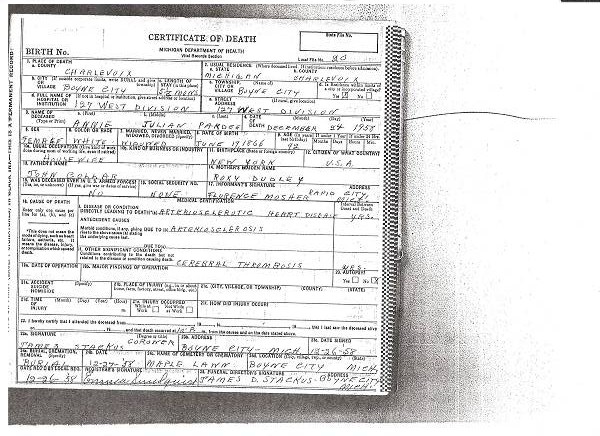 CERTIFICATE OF DEATH
State File No.
MICHIGAN DEPARTMENT OF HEALTH
Vital Records Section
BIRTH No.
Local File No. 20
1. PLACE OF DEATH
a. COUNTY
CHARLEVOIX
2. USUAL RESIDENCE (Where deceased lived. If institution: residence before admission)
a. STATE MICHIGAN
b. COUNTY CHARLEVOIX
b. CITY OR VILLAGE BOYNE CITY
c. LENGTH OF STAY (in this place)
c. TOWNSHIP, CITY OR VILLAGE BOYNE CITY
Yes No
d. FULL NAME OF HOSPITAL OR INSTITUTION 127 WEST DIVISION
d. STREET ADDRESS 127 WEST DIVISION
3. NAME OF DECEASED (Type or Print)
a. (First) b. (Middle) c. (Last)
ANNIE JULIAN PARDEE
4. DATE OF DEATH (Month) (Day) (Year)
DECEMBER 24 1958
5. SEX 6. COLOR OR RACE 7. MARRIED, NEVER MARRIED, WIDOWED, DIVORCED (Specify) 8. DATE OF BIRTH
WHITE WIDOWED JUNE 19 1866 92
10a. USUAL OCCUPATION 10b. KIND OF BUSINESS OR INDUSTRY 11. BIRTHPLACE (State or foreign country) 12. CITIZEN OF WHAT COUNTRY?
HOUSEWIFE NEW YORK U.S.A.
13. FATHER'S NAME 14. MOTHER'S MAIDEN NAME
JOHN ROXY DUDLEY
15. WAS DECEASED EVER IN U.S. ARMED FORCES? 16. SOCIAL SECURITY NO. 17. INFORMANT'S SIGNATURE ADDRESS
NO NONE FLORENCE MOSHER CITY, MICH.
18. CAUSE OF DEATH
MEDICAL CERTIFICATION
Interval Between Onset and Death
I. DISEASE OR CONDITION
DIRECTLY LEADING TO DEATH ARTERIOSCLEROTIC HEART DISEASE YRS.
ANTECEDENT CAUSES
DUE TO ARTERIOSCLEROSIS
DUE TO
II. OTHER SIGNIFICANT CONDITIONS
Conditions contributing to the death but not
related to the disease or condition causing death.
CEREBRAL THROMBOSIS YRS.
19a. DATE OF OPERATION 19b. MAJOR FINDINGS OF OPERATION 20. AUTOPSY
Yes No
21a. ACCIDENT SUICIDE HOMICIDE (Specify)
21b. PLACE OF INJURY
21c. (CITY, VILLAGE, OR TOWNSHIP) (COUNTY) (STATE)
21d. TIME OF INJURY (Month) (Day) (Year) (Hour)
21e. INJURY OCCURRED
While at Work Not While at Work
21f. HOW DID INJURY OCCUR?
22. I hereby certify that I attended the deceased from
and that death occurred at from the causes and on the date stated above.
23a. SIGNATURE (Degree or title) 23b. ADDRESS 23c. DATE SIGNED
JAMES STACKUS CORONER BOYNE CITY - MICH. 12-26-58
24a. BURIAL, CREMATION, REMOVAL (Specify) 24b. DATE 24c. NAME OF CEMETERY OR CREMATORY 24d. LOCATION
BURIAL 12-27-58 MAPLE LAWN BOYNE CITY MICH.
DATE REC'D BY LOCAL REG. REGISTRAR'S SIGNATURE 25. FUNERAL DIRECTOR'S SIGNATURE ADDRESS
12-26-58 JAMES D. STACKUS - BOYNE CITY MICH.